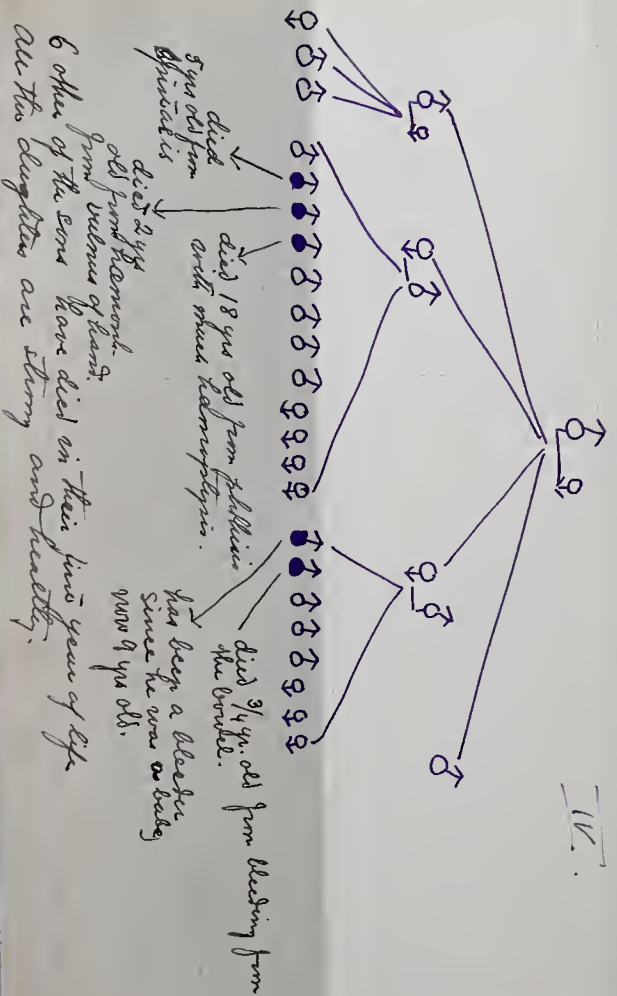 IV.
died
5 yrs old from
died 2 yrs
old from hæmorrh.
from vulnus of hand.
died 18 yrs old from phthisis
with much hæmoptysis.
died 3/4 yr. old from bleeding from
the bowel.
has been a bleeder
since he was a babe,
now 9 yrs old.
6 other of the sons have died in their first year of life
all the daughters are strong and healthy.